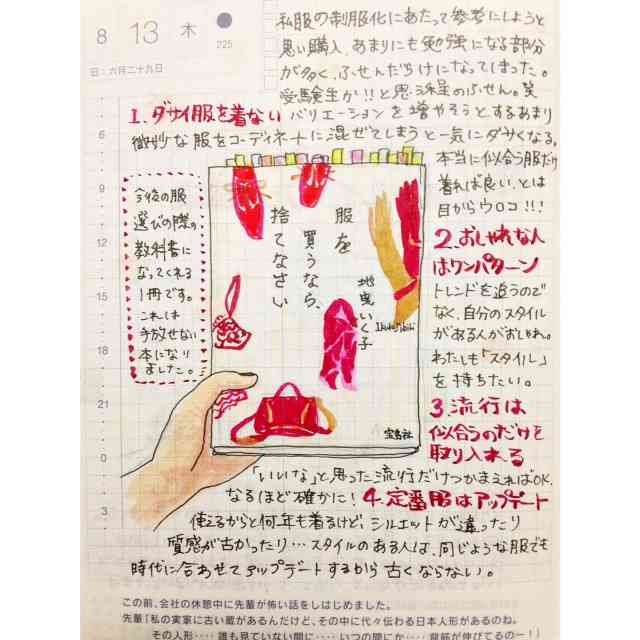 8 13 木
225
旧：六月二十九日
私服の制服化にあたって参考にしようと
思い購入。あまりにも勉強になる部分
が多く、ふせんだらけになってしまった。笑
受験生か!!と思う深星のふせん。笑
1. ダサイ服を着ない バリエーションを増やそうとするあまり
微妙な服をコーディネートに混ぜてしまうと一気にダサくなる。
本当に似合う服だけ
着れば良い、とは
目からウロコ!!!
今後の服
選びの際の
教科書に
なってくれる
1冊です。
これは
手放せない
本になり
ました。
服を
買うなら、
捨てなさい
地曳いく子
Ikuko Jibiki
宝島社
2. おしゃれな人
はワンパターン
トレンドを追うので
なく、自分のスタイル
がある人がおしゃれ。
わたしも「スタイル」
を持ちたい。
3. 流行は
似合うのだけを
取り入れる
「いいな」と思った流行だけつかまえればOK.
なるほど確かに！ 4. 定番服はアップデート
使えるからと何年も着るけど、シルエットが違ったり
質感が古かったり…スタイルのある人は、同じような服でも
時代に合わせてアップデートするから古くならない。
9
12
15
18
21
0
3
この前、会社の休憩中に先輩が怖い話をしはじめました。
先輩「私の実家に古い蔵があるんだけど、その中に代々伝わる日本人形があるのね。
その人形‥‥誰も見ていない間に‥‥いつの間にか‥‥背筋が伸びてるのー！」